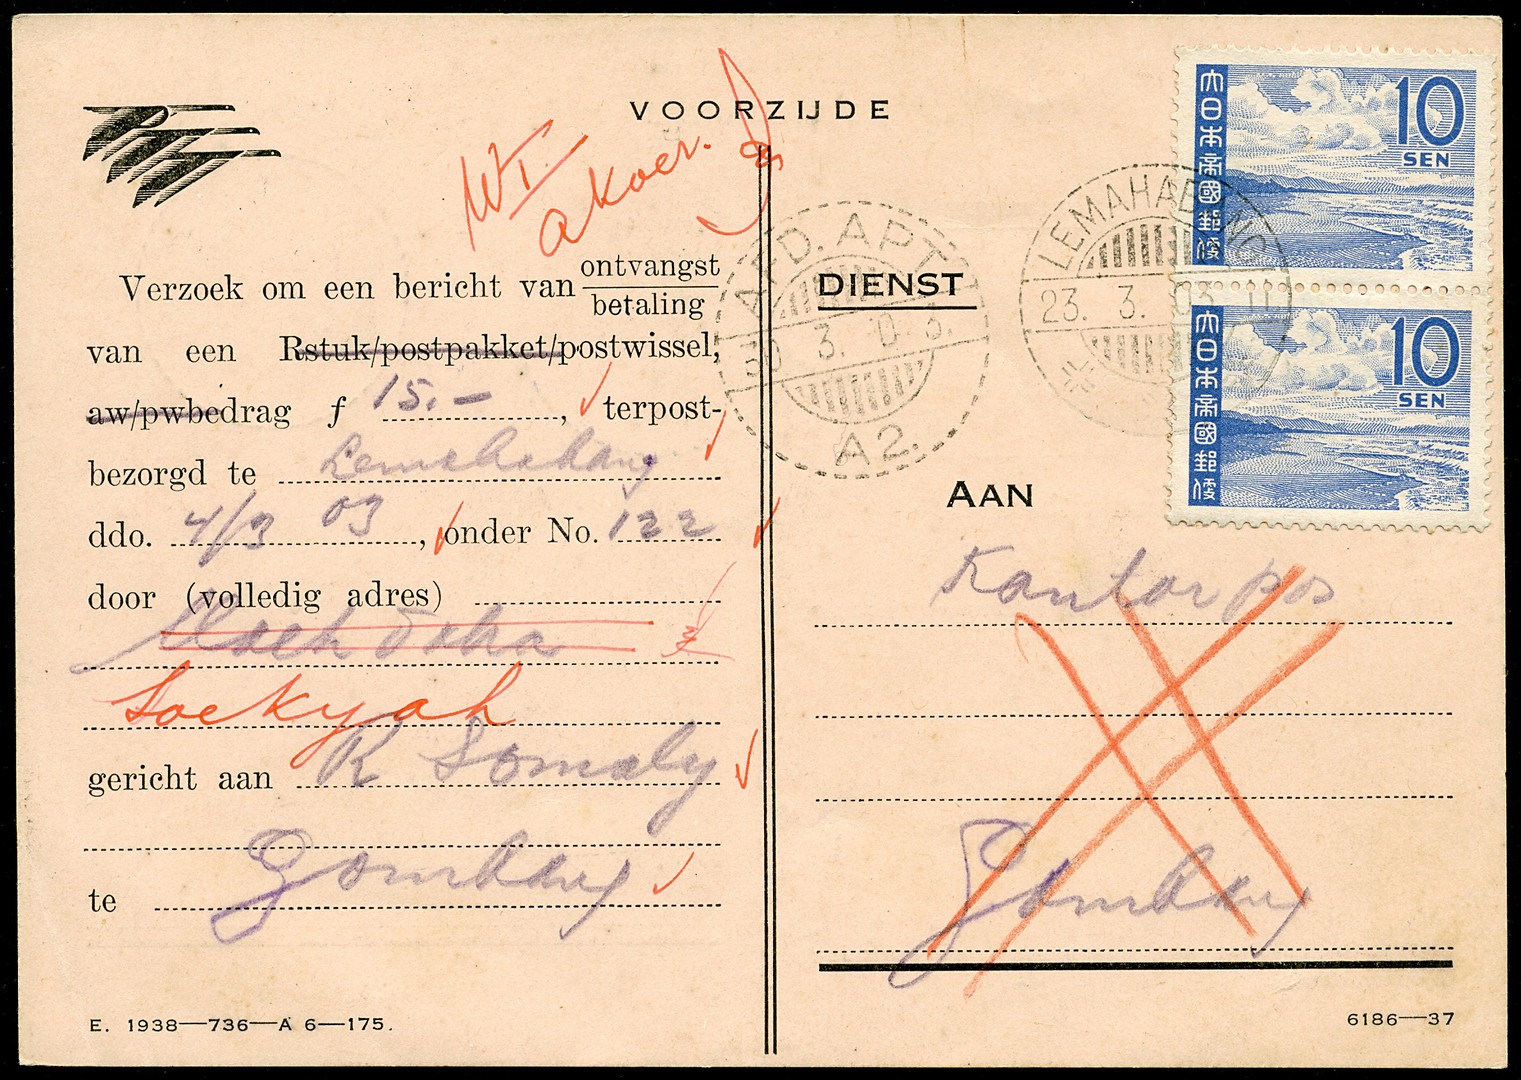 VOORZIJDE
akoer.
Verzoek om een bericht van ontvangst
betaling
van een Rstuk/postpakket/postwissel,
aw/pwbedrag f 15.- , terpost-
bezorgd te Lemahabang
ddo. 4/3 03, onder No. 122
door (volledig adres)
Soekyah
gericht aan R Somaly
te Jombang
E. 1938—736—A 6—175.
AFD. APT
3. 0 3.
A2.
DIENST
LEMAHABANG
23. 3. 03 11
大日本帝國郵便
10
SEN
大日本帝國郵便
10
SEN
AAN
Kantor pos
Jombang
6186—37